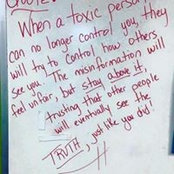 QUOTE
When a toxic person
can no longer control you, they
will try to control how others
see you. The misinformation will
feel unfair, but stay above it,
trusting that other people
will eventually see the
TRUTH, just like you did!